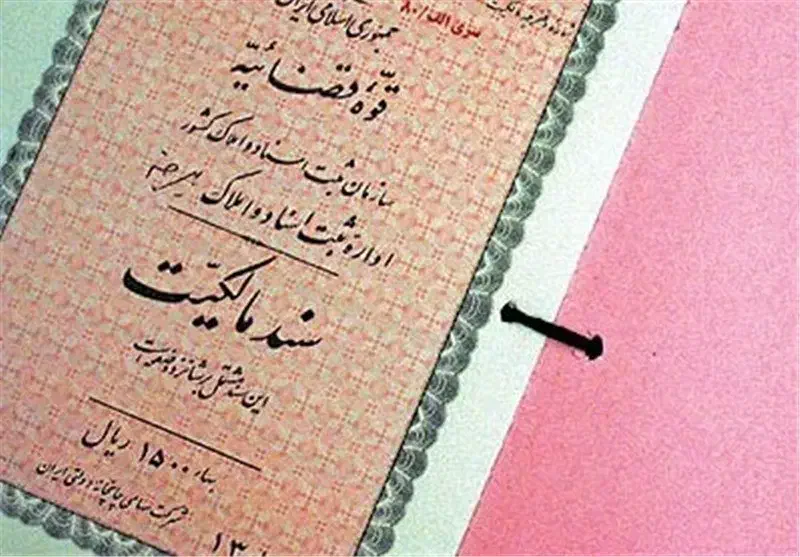 سری الف/۸۰
جمهوری اسلامی ایران
قوّهٔ قضائیّه
سازمان ثبت اسناد و املاک کشور
ادارهٔ ثبت اسناد و املاک بیرجند
سند مالکیّت
این سند مشتمل بر شانزده صفحه است
بهاء ۱۵۰۰ ریال
شرکت سهامی چاپخانه دولتی ایران